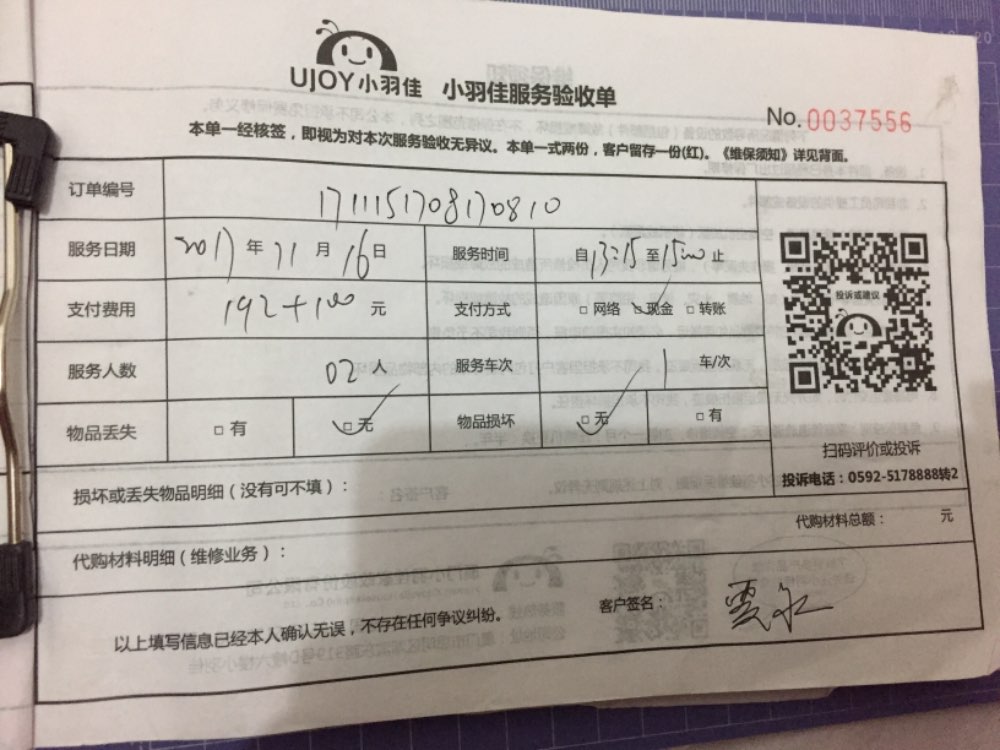 UJOY小羽佳 小羽佳服务验收单
No.0037556
本单一经核签，即视为对本次服务验收无异议。本单一式两份，客户留存一份(红)。《维保须知》详见背面。
订单编号 1711151708170810
服务日期 2017年11月16日 服务时间 自13:15至15:00止
支付费用 192+100元 支付方式 □网络 □现金 □转账
服务人数 02人 服务车次 1 车/次
物品丢失 □有 □无 物品损坏 □无 □有
投诉或建议
扫码评价或投诉
投诉电话：0592-5178888转2
损坏或丢失物品明细（没有可不填）：
代购材料总额： 元
代购材料明细（维修业务）：
客户签名：
以上填写信息已经本人确认无误，不存在任何争议纠纷。